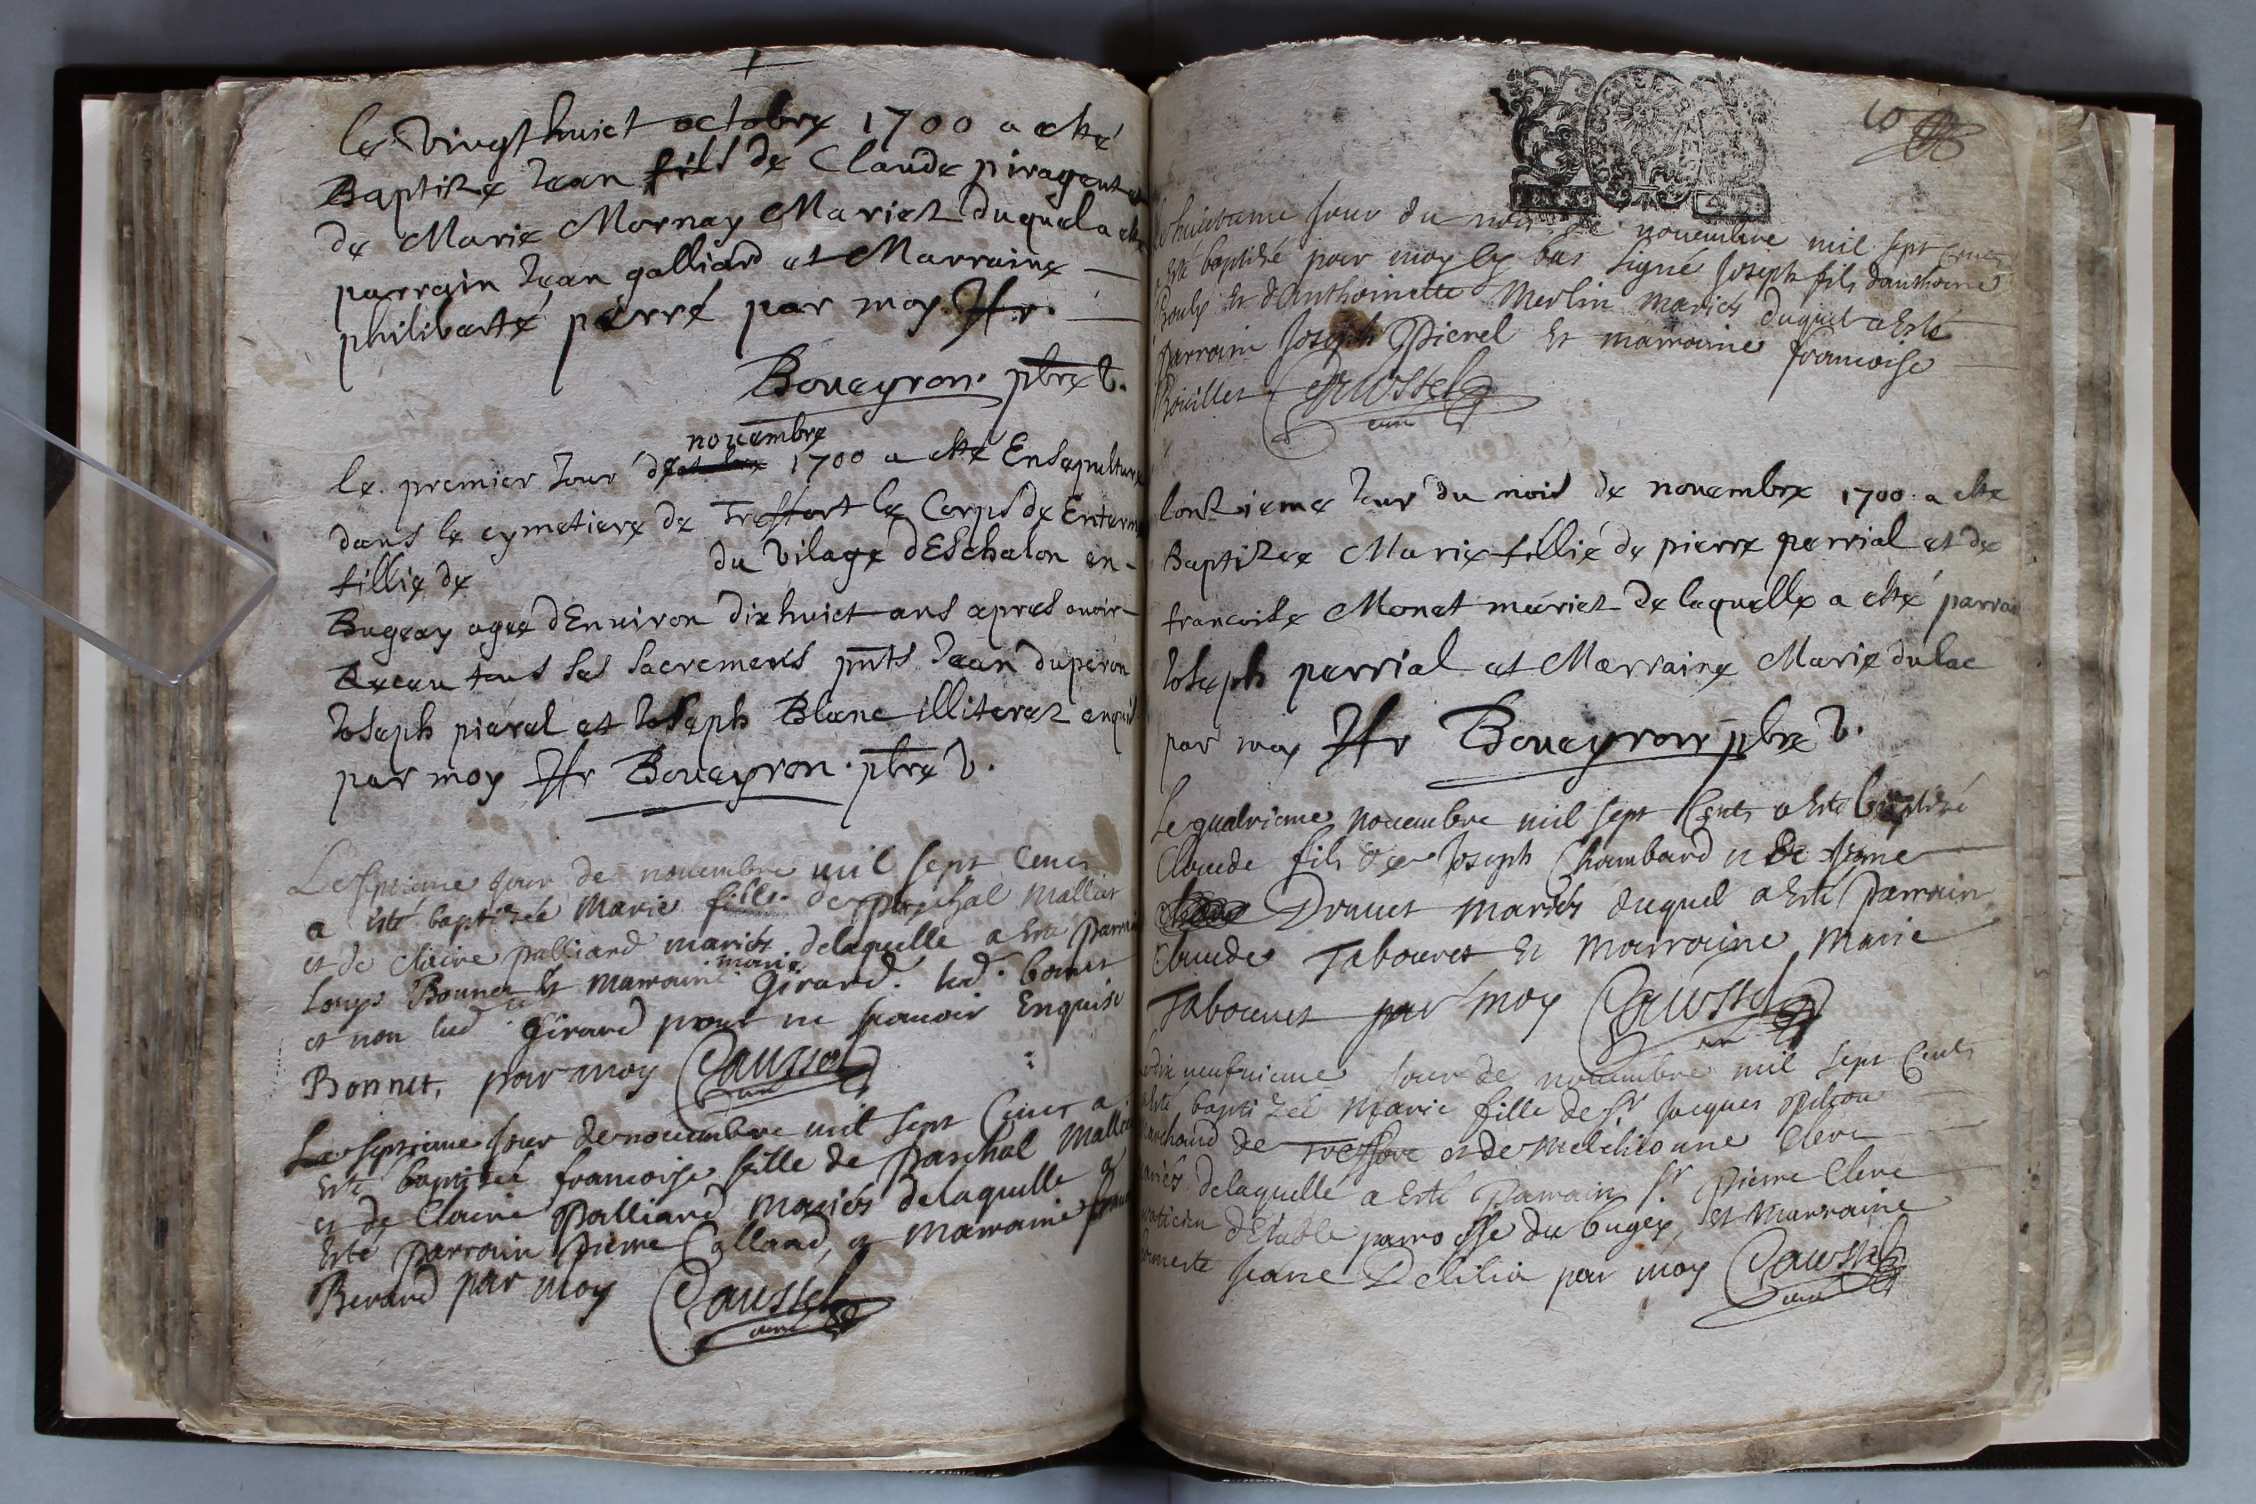 le vingt huict octobre 1700 a esté
Baptize Jean fils de Claude piragent et
de Marie Mornay Mariez duquel a esté
parrain Jean galliard et Marraine
philiberte pierre par moy Hr.
Boueyron. pbre V.
novembre
le premier Jour de 1700 a esté Ensepulture
dans le cymetiere de Treffort le Corps de
fillie de du Vilage dEschalon en
Bugeay agee dEnviron dix huict ans apres avoir
Receu tous ses sacremens pnts Jean duperon
Joseph pieral et Joseph Blanc illiterez enquis
par moy Hr Boueyron. pbre V.
Le septieme Jour de novembre mil sept Cens
a esté baptizée Marie fille de paschal Mallier
et de claire palliard mariés delaquelle a esté parrain
Louys Bonnet et marraine marie Girard.
et non lad. Girard pour ne scavoir Enquise
Bonnet, par moy Caussel
curé
Le septieme Jour de novembre mil sept Cens a
esté baptizée francoise fille de paschal Mallier
et de Claire Palliard mariés delaquelle a
esté parrain pierre Colland, et marraine
Berard par moy Caussel
curé
10
Le huictieme Jour du mois de novembre mil sept Cens
a esté baptizé par moy le bas signé Joseph fils danthoine
Bouly et danthoinette Merlin mariés duquel a esté
parrain Joseph Pierel et marraine francoise
Bouillet Caussel
curé
lonzieme Jour du mois de novembre 1700 a esté
Baptizee Marie fillie de pierre perrial et de
francoise Monet mariez de laquelle a esté parrain
Joseph perrial et Marraine Marie dulac
par moy Hr Boueyron pbre V.
Le quatrieme novembre mil sept Cens a esté baptizé
Claude fils de Joseph Chambard et de
Drouet mariés duquel a esté parrain
Claude Tabouret et Marraine Marie
Tabouret par moy Caussel
curé
Le dix neufvieme Jour de novembre mil sept Cents
a esté baptizée Marie fille de Sr Jacques Pilcou
marchand de Treffort et de Melchionne Clerc
mariés delaquelle a esté Parrain Sr Pierre Clerc
praticien dEtable parroisse du bugey, et marraine
honneste Jeane Delilia par moy Caussel
curé